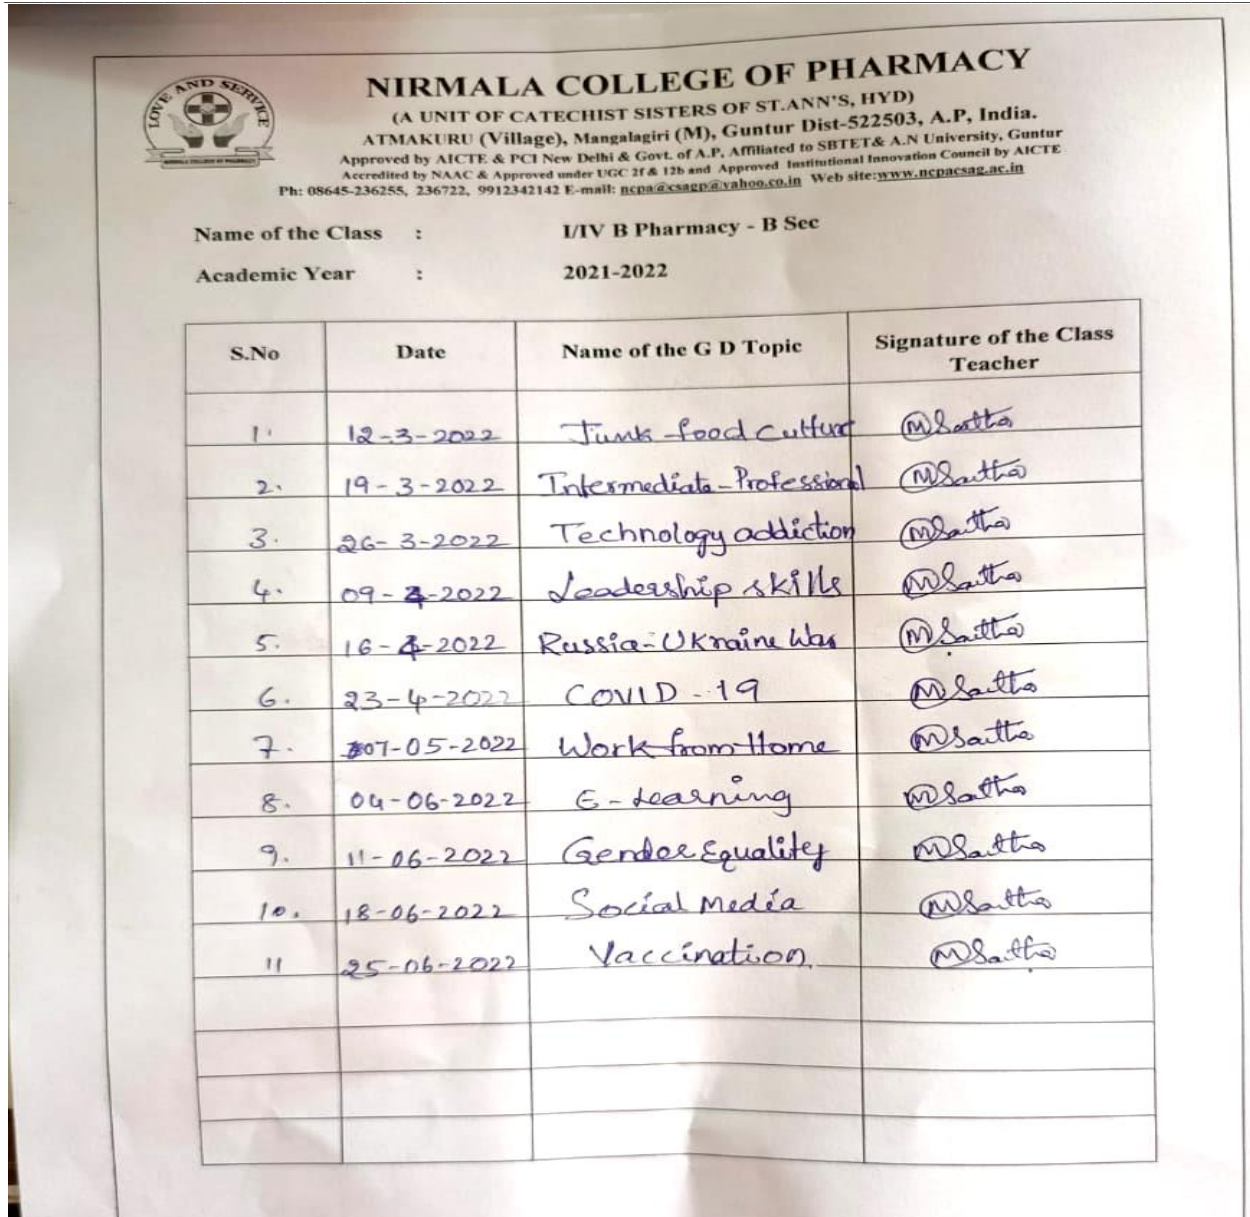 LOVE AND SERVICE
NIRMALA COLLEGE OF PHARMACY
NIRMALA COLLEGE OF PHARMACY
(A UNIT OF CATECHIST SISTERS OF ST.ANN'S, HYD)
ATMAKURU (Village), Mangalagiri (M), Guntur Dist-522503, A.P, India.
Approved by AICTE & PCI New Delhi & Govt. of A.P. Affiliated to SBTET& A.N University, Guntur
Accredited by NAAC & Approved under UGC 2f & 12b and Approved Institutional Innovation Council by AICTE
Ph: 08645-236255, 236722, 9912342142 E-mail: ncpa@csagp@yahoo.co.in Web site:www.ncpacsag.ac.in
Name of the Class : I/IV B Pharmacy - B Sec
Academic Year : 2021-2022
S.No Date Name of the G D Topic Signature of the Class Teacher
1. 12-3-2022 Junk food culture
2. 19-3-2022 Intermediate-Professional
3. 26-3-2022 Technology addiction
4. 09-4-2022 Leadership skills
5. 16-4-2022 Russia-Ukraine War
6. 23-4-2022 COVID-19
7. 07-05-2022 Work from Home
8. 04-06-2022 E-Learning
9. 11-06-2022 Gender Equality
10. 18-06-2022 Social Media
11 25-06-2022 Vaccination